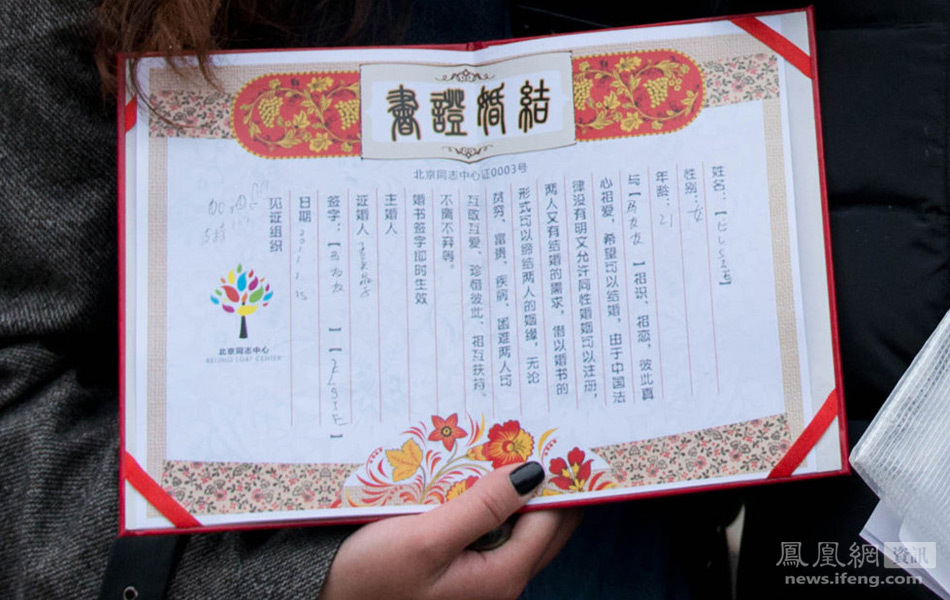 結婚證書
北京同志中心证0003号
姓名：【
性别：女
年龄：21
与【 】相识、相恋，彼此真
心相爱，希望可以结婚，由于中国法
律没有明文允许同性婚姻可以注册，
两人又有结婚的需求，借以婚书的
形式可以缔结两人的姻缘，无论
贫穷、富贵、疾病、困难两人可
互敬互爱、珍惜彼此、相互扶持、
不离不弃等。
婚书签字即时生效
主婚人
证婚人
签字：【 】【 】
日期
见证组织
支持
北京同志中心
BEIJING LGBT CENTER
鳳凰網資訊
news.ifeng.com